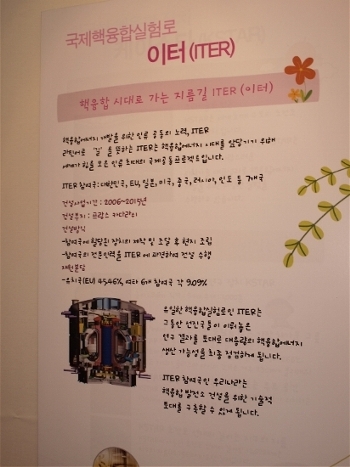 국제핵융합실험로
이터(ITER)
핵융합 시대로 가는 지름길 ITER (이터)
핵융합에너지 개발을 위한 인류 공동의 노력, ITER
라틴어로 '길' 을 뜻하는 ITER는 핵융합에너지 시대를 앞당기기 위해
세계가 힘을 모은 인류 최대의 국제공동프로젝트입니다.
ITER 참여국: 대한민국, EU, 일본, 미국, 중국, 러시아, 인도 등 7개국
건설사업기간 : 2006~2015년
건설부지 : 프랑스 카다라쉬
건설방식
-참여국에 할당된 장치의 제작 및 조달 후 현지 조립
-참여국의 전문인력을 ITER에 파견하여 건설 수행
재원분담
-유치국(EU) 45.46%, 여타 6개 참여국 각 9.09%
유일한 핵융합실험로인 ITER는
그동안 선진국들이 이뤄놓은
연구 결과를 토대로 대용량의 핵융합에너지
생산 가능성을 최종 점검하게 됩니다.
ITER 참여국인 우리나라는
핵융합 발전소 건설을 위한 기술적
토대를 구축할 수 있게 됩니다.